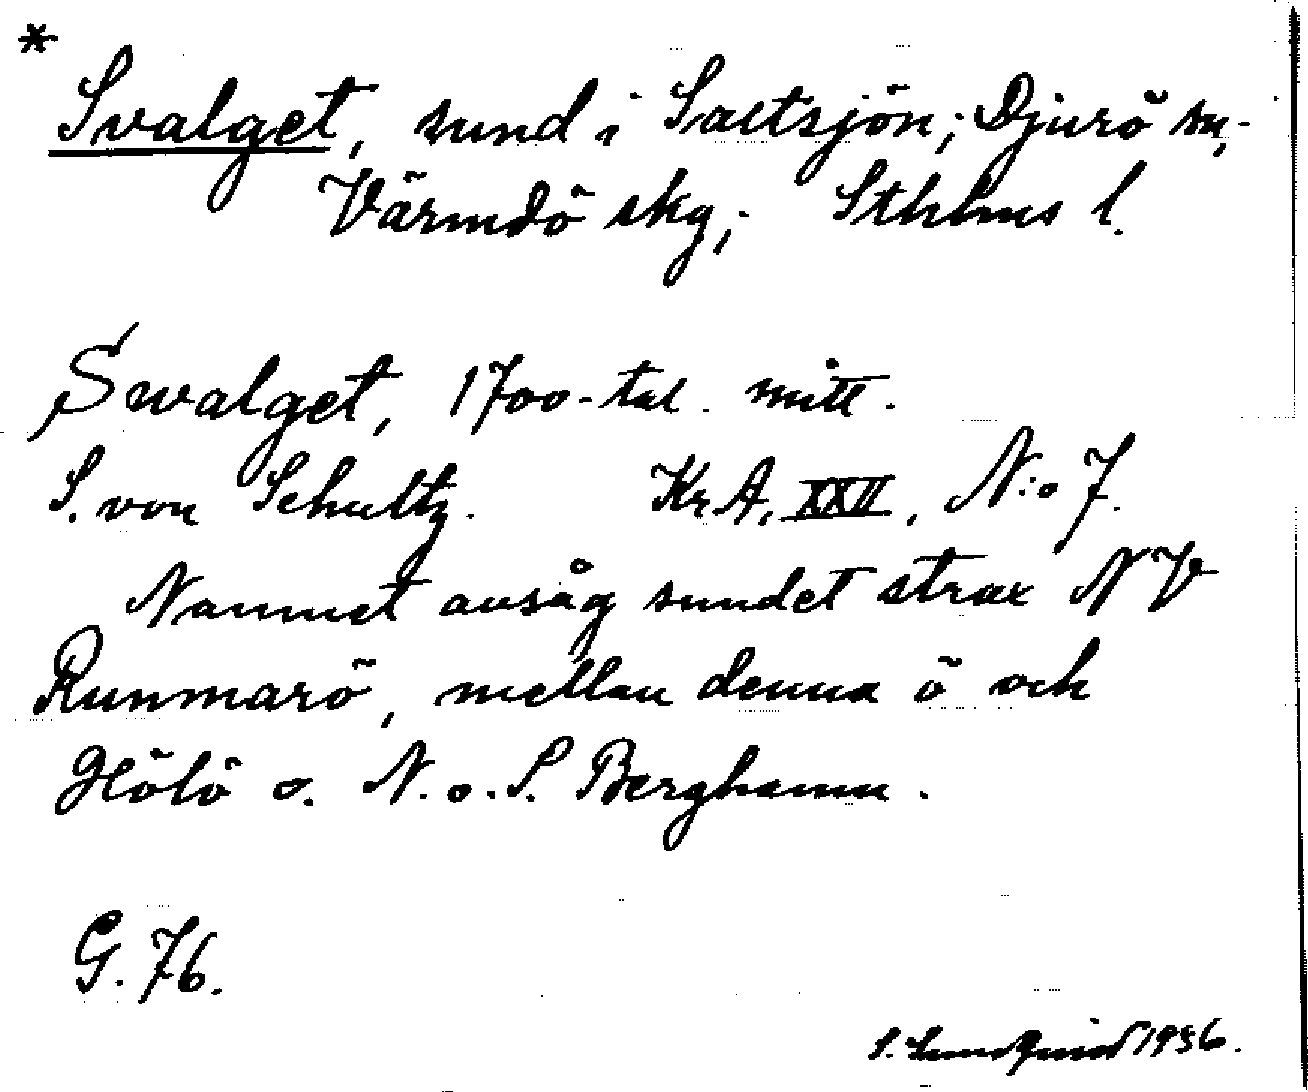 *
Svalget, sund i Saltsjön; Djurö sn;
Värmdö skg; Sthlms l.
Swalget, 1700-tal. mitt.
S. von Schultz. Kr.A, XXII, N:o 7.
Namnet avsåg sundet strax NV
Runmarö, mellan denna ö och
Hölö o. N. o. S. Berghamn.
G. 76.
S. Lundquist 1956.